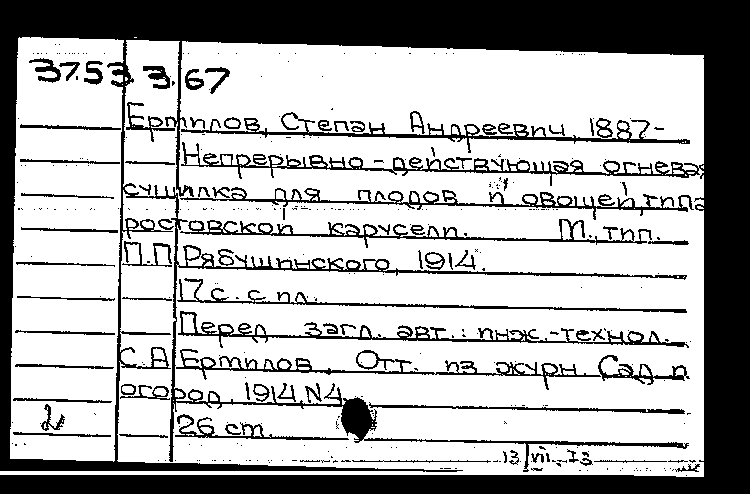 37.53.3.67
Ертилов, Степан Андреевич, 1887-
Непрерывно-действующая огневая
сушилка для плодов и овощей, типа
ростовской карусели. М., тип.
П.П. Рябушинского, 1914.
17 с. с ил.
Перед загл. авт.: инж.-технол.
С.А. Ертилов. Отт. из журн. Сад и
огород. 1914, N4.
2
26 cm.
13/VII.73